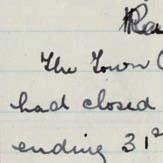 Ra
The Town
had closed
ending 31st